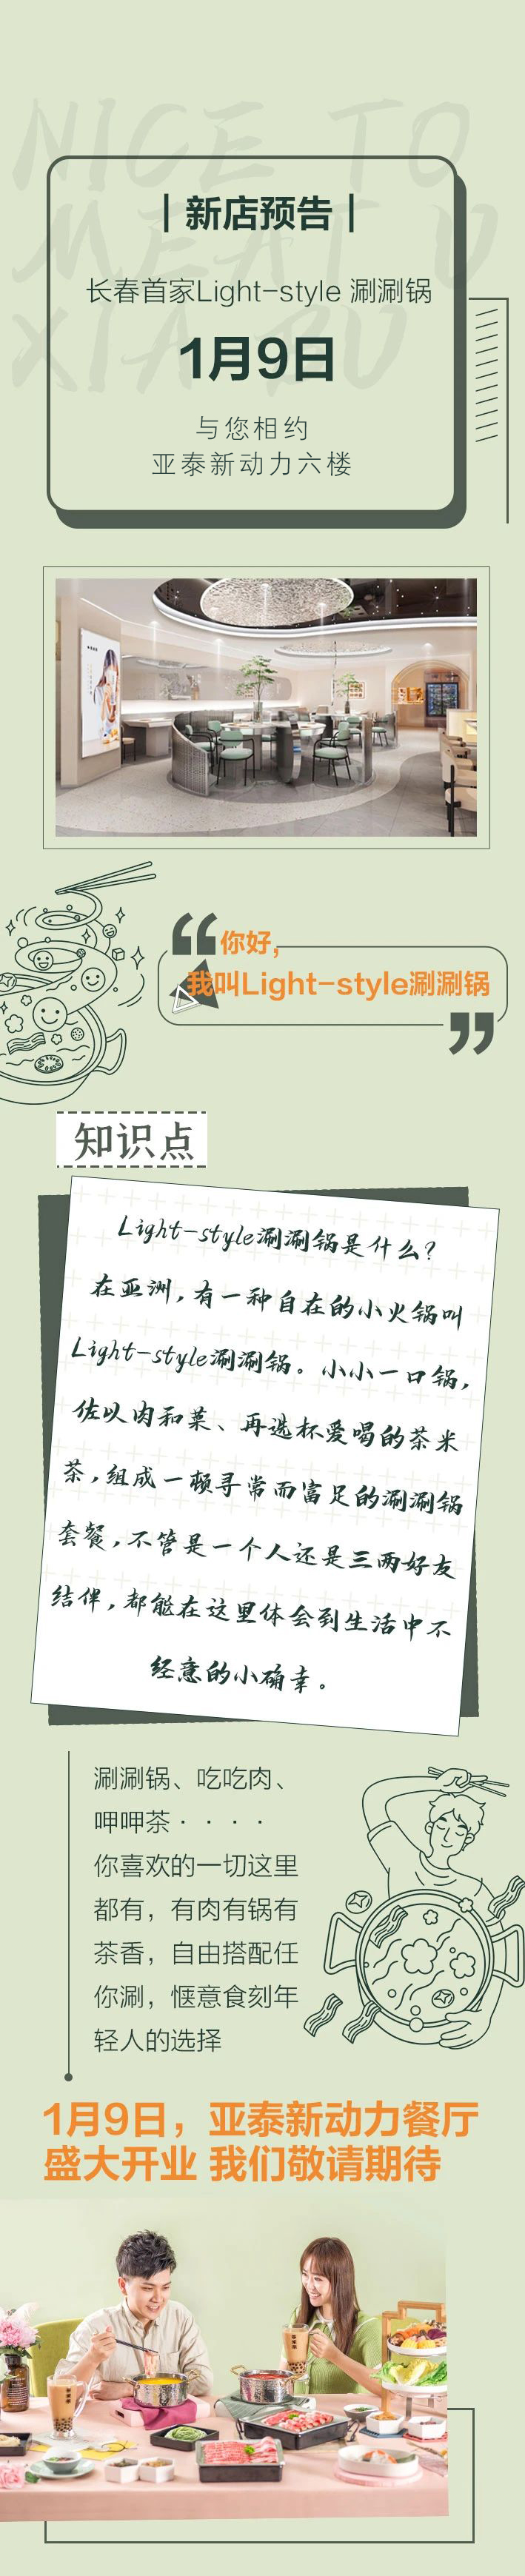 NICE TO
MEAT U
XIA BU
新店预告
长春首家Light-style 涮涮锅
1月9日
与您相约
亚泰新动力六楼
“你好,
我叫Light-style涮涮锅”
知识点
Light-style涮涮锅是什么?
在亚洲,有一种自在的小火锅叫
Light-style涮涮锅。小小一口锅,
佐以肉和菜、再选杯爱喝的茶米
茶,组成一顿寻常而富足的涮涮锅
套餐,不管是一个人还是三两好友
结伴,都能在这里体会到生活中不
经意的小确幸。
涮涮锅、吃吃肉、
呷呷茶····
你喜欢的一切这里
都有，有肉有锅有
茶香，自由搭配任
你涮，惬意食刻年
轻人的选择
1月9日，亚泰新动力餐厅
盛大开业 我们敬请期待